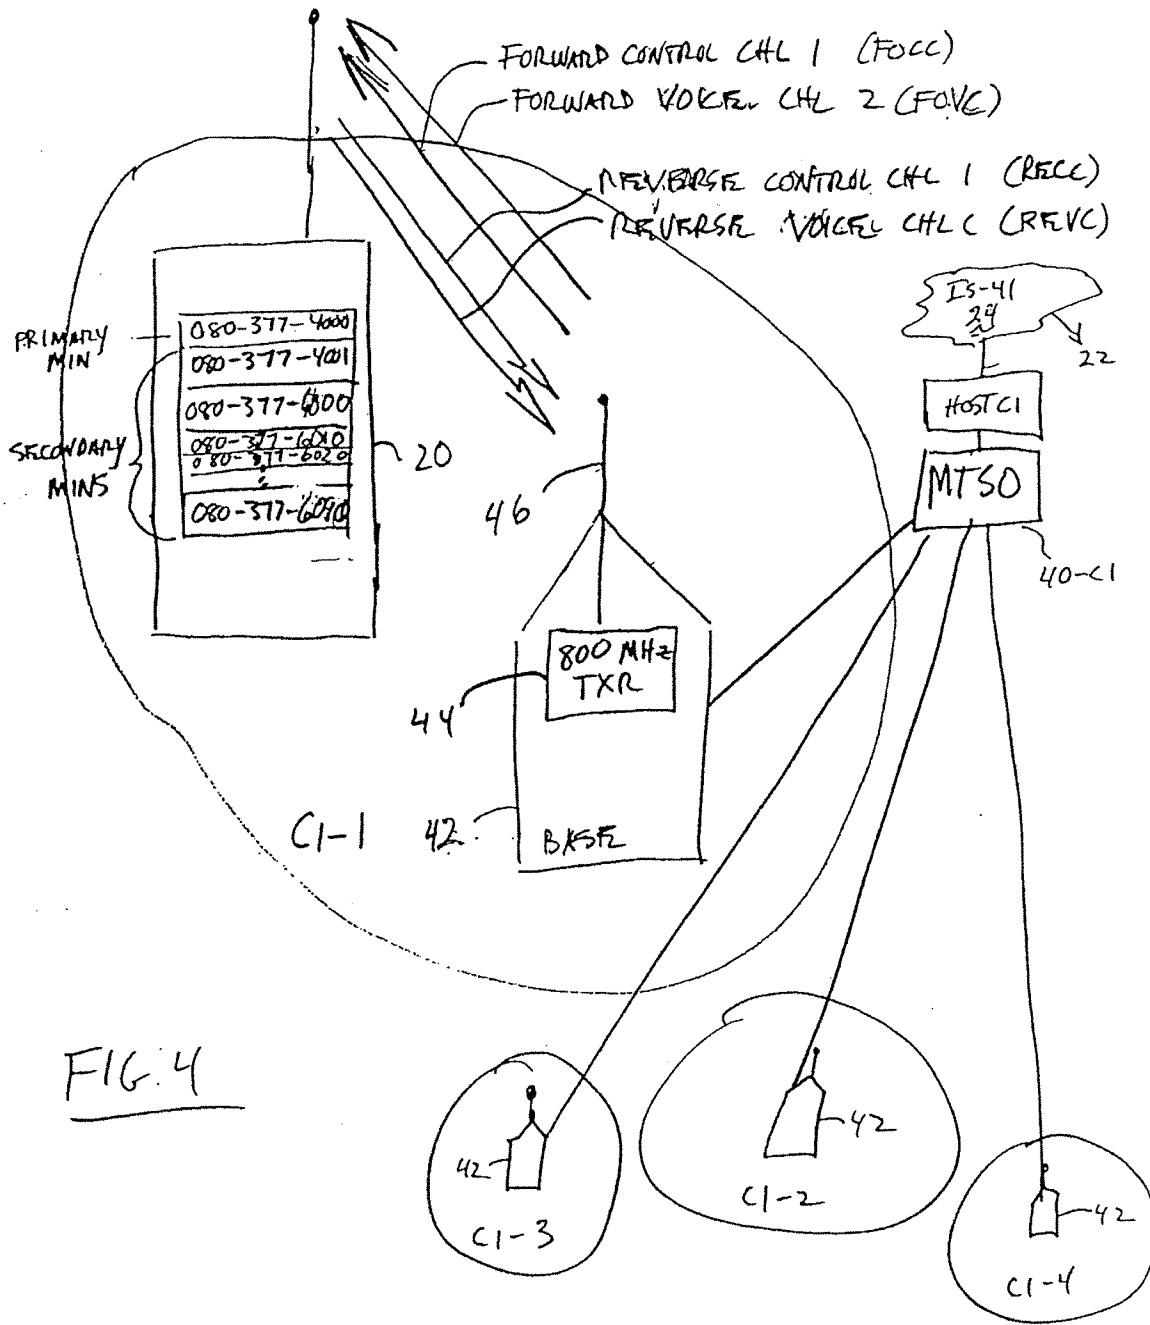 FORWARD CONTROL CHL 1 (FOCC)
FORWARD VOICE CHL 2 (FOVC)
REVERSE CONTROL CHL 1 (RECC)
REVERSE VOICE CHL C (REVC)
IS-41
24
22
HOST C1
MTSO
40-C1
PRIMARY
MIN
080-377-4000
080-377-4001
080-377-6000
080-377-6010
080-377-6020
080-377-6090
SECONDARY
MINS
20
46
800 MHz
TXR
44
C1-1
42
BASE
FIG. 4
42
C1-3
42
C1-2
42
C1-4